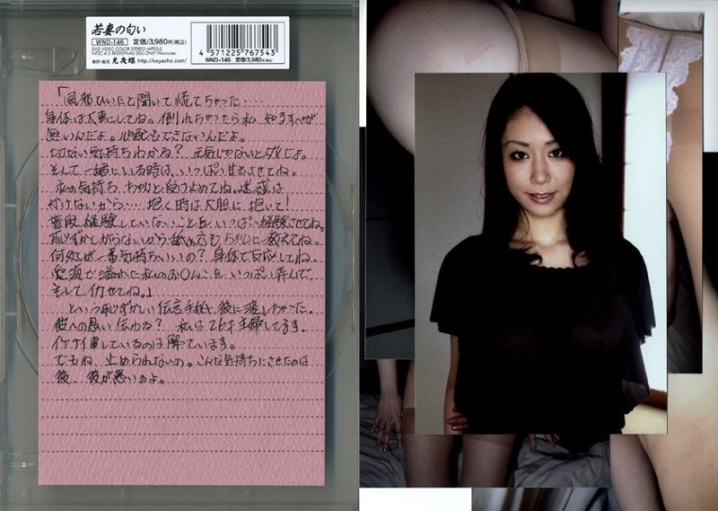 若妻の匂い
WND-146 定価/3,980円(税込)
制作・販売 光夜蝶 http://koyacho.com/
4 571225 767543
WND-146 定価/3,980円(税込)
「風邪ひいたと聞いて慌てちゃった…
身体は大事にしてね。倒れちゃったら私、知るすべが
無いんだよ。心配もできないんだよ。
切ない気持ちわかる？元気じゃないとダメだよ。
そして一緒にいる時は、いっぱい甘えさせてね。
私の気持ち、ちゃんと受け止めてね。迷惑は
かけないから… 抱く時は大胆に抱いて！
普段、経験していないことを、いっぱい経験させてね。
恥ずかしがらないから舐め方もちゃんと教えてね。
何処が一番気持ちいいの？身体で反応してね。
愛液が溢れた私のお〇んこを、いっぱい弄んで、
そして イカせてね。」
という恥ずかしい伝言手紙を彼に渡しちゃった。
彼への思い伝わる？ 私は26才主婦してます。
イケナイ事しているのは解っています。
でもね、止められないの。こんな気持ちにさせたのは
彼、彼が悪いのよ。